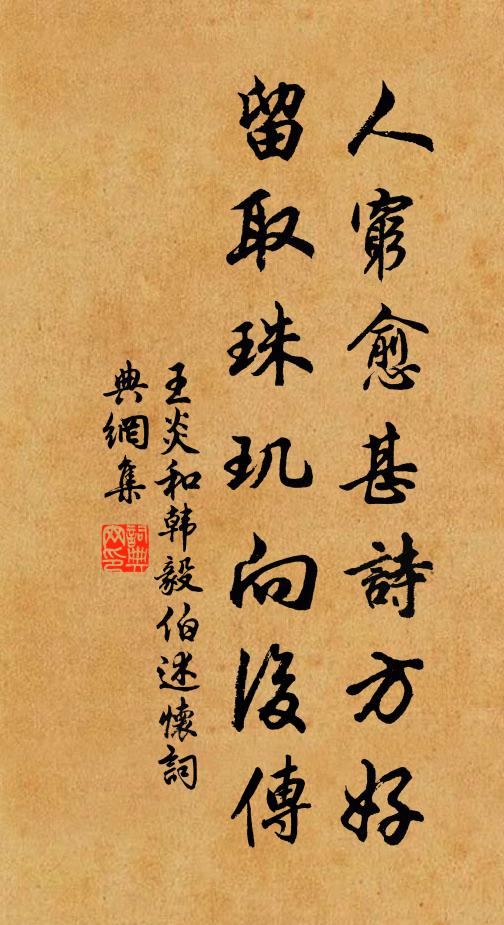 人窮愈甚詩方好
留取珠玑向後傳
王炎和韩毅伯述懷詞
典網集
詞典
网印